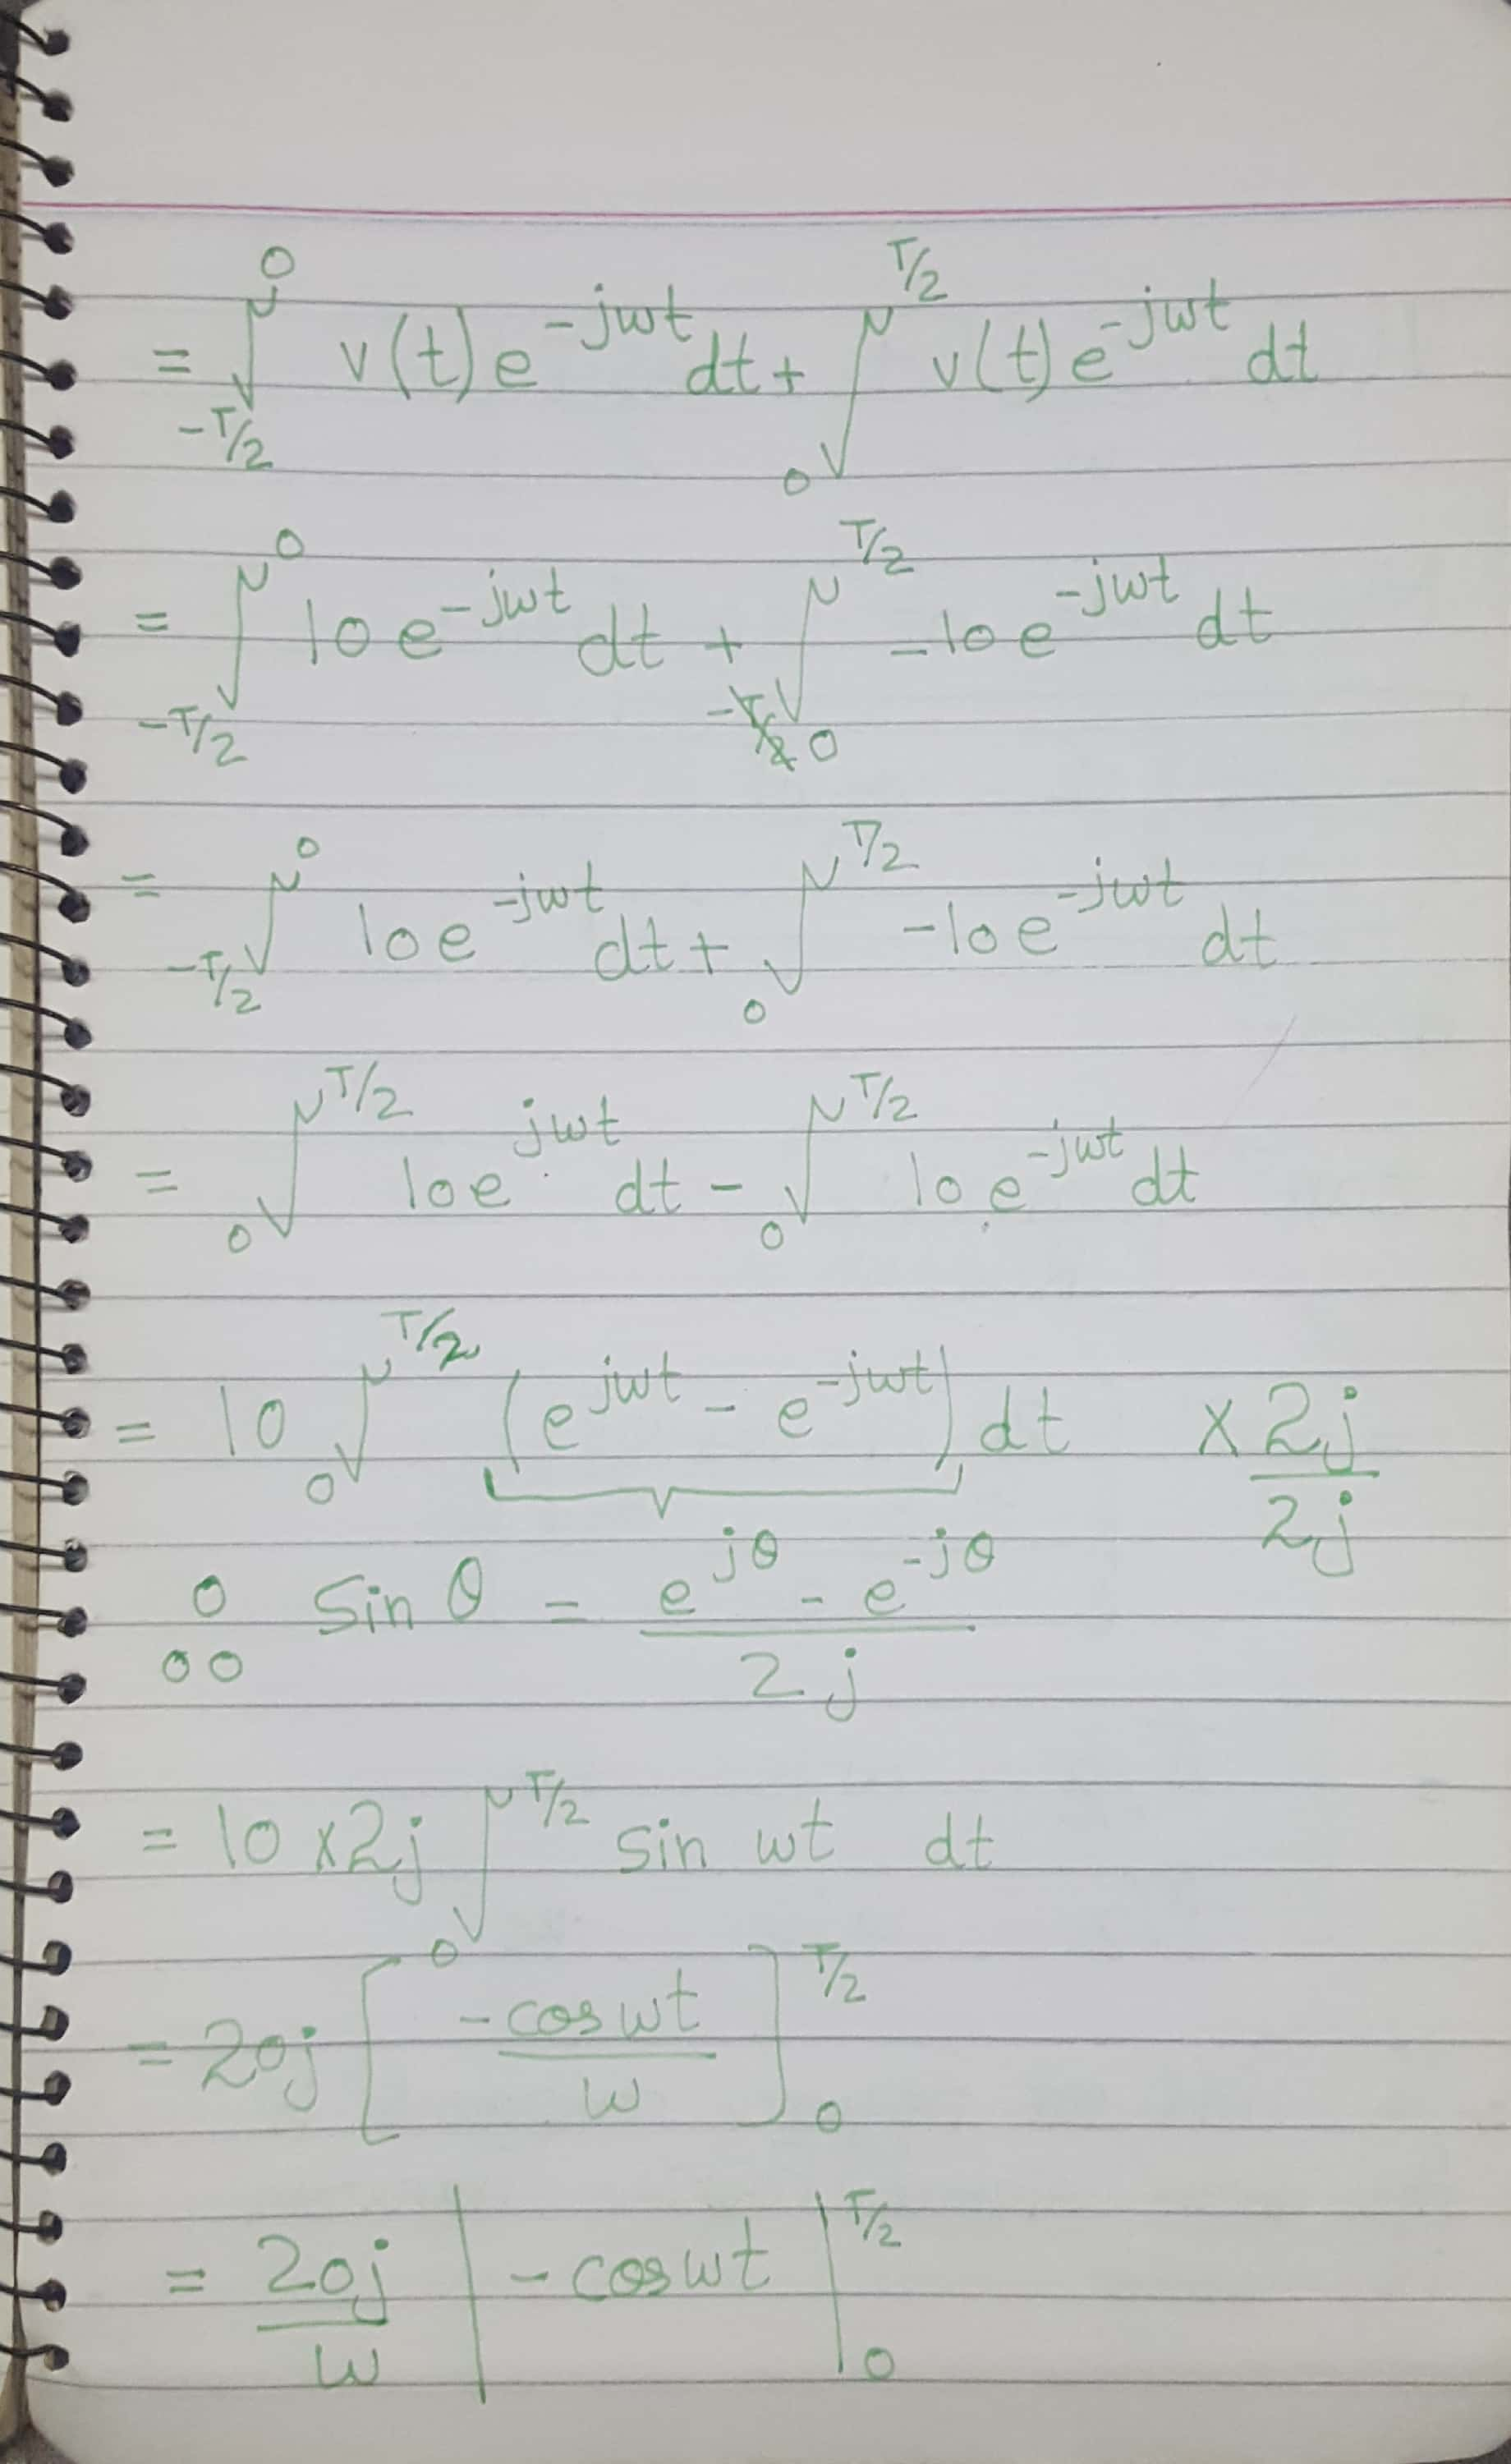 = ∫_{-T/2}^{0} v(t) e^{-jwt} dt + ∫_{0}^{T/2} v(t) e^{-jwt} dt
= ∫_{-T/2}^{0} 10 e^{-jwt} dt + ∫_{0}^{T/2} -10 e^{-jwt} dt
= ∫_{-T/2}^{0} 10 e^{-jwt} dt + ∫_{0}^{T/2} -10 e^{-jwt} dt
= ∫_{0}^{T/2} 10 e^{jwt} dt - ∫_{0}^{T/2} 10 e^{-jwt} dt
= 10 ∫_{0}^{T/2} (e^{jwt} - e^{-jwt}) dt × 2j/2j
∴ Sin θ = (e^{jθ} - e^{-jθ})/2j
= 10 × 2j ∫_{0}^{T/2} sin wt dt
= 20j [-cos wt/w]_{0}^{T/2}
= 20j/w |-cos wt|_{0}^{T/2}